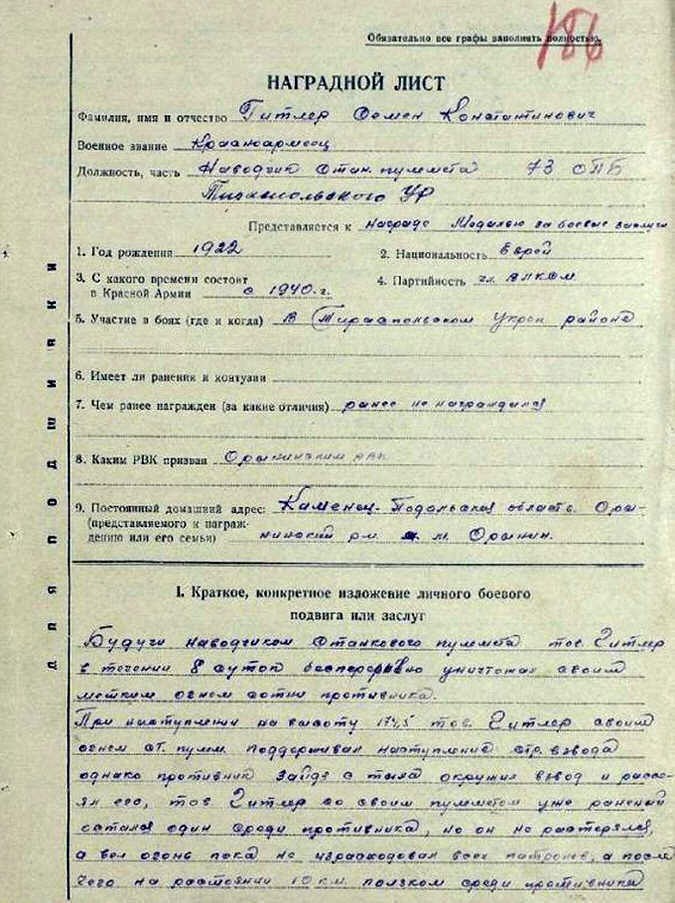 Обязательно все графы заполнять полностью.
186
НАГРАДНОЙ ЛИСТ
Фамилия, имя и отчество Гитлер Семен Константинович
Военное звание Красноармеец
Должность, часть Наводчик Стан. пулемета 73 ОПБ
Тираспольского УР
Представляется к награде Медалью за боевые заслуги
1. Год рождения 1922 2. Национальность Еврей
3. С какого времени состоит
в Красной Армии с 1940.г. 4. Партийность чл. ВЛКСМ
5. Участие в боях (где и когда) В Тираспольском Укреп районе
6. Имеет ли ранения и контузии
7. Чем ранее награжден (за какие отличия) ранее не награждался
8. Каким РВК призван Орынинским РВК
9. Постоянный домашний адрес: Каменец-Подольская область Оры-
(представляемого к награж-
дению или его семьи) нинский р-н м. Орынин.
I. Краткое, конкретное изложение личного боевого
подвига или заслуг
Будучи наводчиком Станкового пулемета тов. Гитлер
в течении 8 суток бесперерывно уничтожал своим
метким огнем сотни противника.
При наступлении на высоту 174,5 тов. Гитлер своим
огнем ст. пулем. поддерживал наступление стр. взвода
однако противник зайдя с тыла окружил взвод и рассе-
ял его, тов Гитлер со своим пулеметом уже раненый
остался один среди противника, но он не растерялся,
а вел огонь пока не израсходовал всех патронов, а после
чего на расстоянии 10 км. ползком среди противника
для подшивки